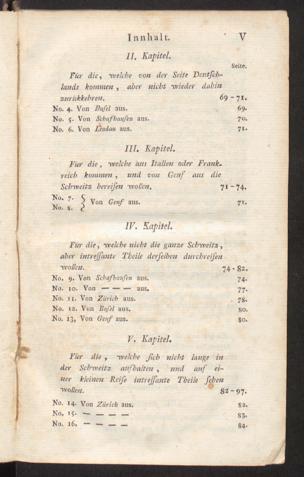 Innhalt. V
II. Kapitel.
Seite.
Für die, welche von der Seite Deutsch-
lands kommen, aber nicht wieder dahin
zurückkehren. 69-71.
No. 4. Von Basel aus. 69.
No. 5. Von Schafhausen aus. 70.
No. 6. Von Lindau aus. 71.
III. Kapitel.
Für die, welche aus Italien oder Frank-
reich kommen, und von Genf aus die
Schweitz bereisen wollen. 71-74.
No. 7. } Von Genf aus. 71.
No. 8.
IV. Kapitel.
Für die, welche nicht die ganze Schweitz,
aber intressante Theile derselben durchreisen
wollen. 74-82.
No. 9. Von Schafhausen aus. 74.
No. 10. Von — — — aus. 77.
No. 11. Von Zürich aus. 78.
No. 12. Von Basel aus. 80.
No. 13, Von Genf aus. 80.
V. Kapitel.
Für die, welche sich nicht lange in
der Schweitz aufhalten, und auf ei-
ner kleinen Reise intressante Theile sehen
wollen. 82-97.
No. 14. Von Zürich aus. 82.
No. 15. — — — — 83.
No. 16. — — — — 84.